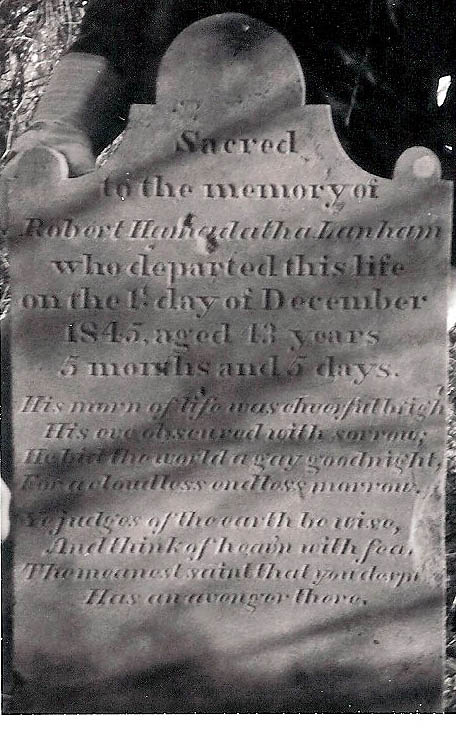 Sacred
to the memory of
Robert Hamadatha Lanham
who departed this life
on the 1st day of December
1845, aged 43 years
5 months and 5 days.
His morn of life was cheerful brigh
His eve obscured with sorrow;
He bid the world a gay goodnight,
For a cloudless endless morrow.
Ye judges of the earth be wise,
And think of heav'n with fea
The meanest saint that you despi
Has an avenger there.